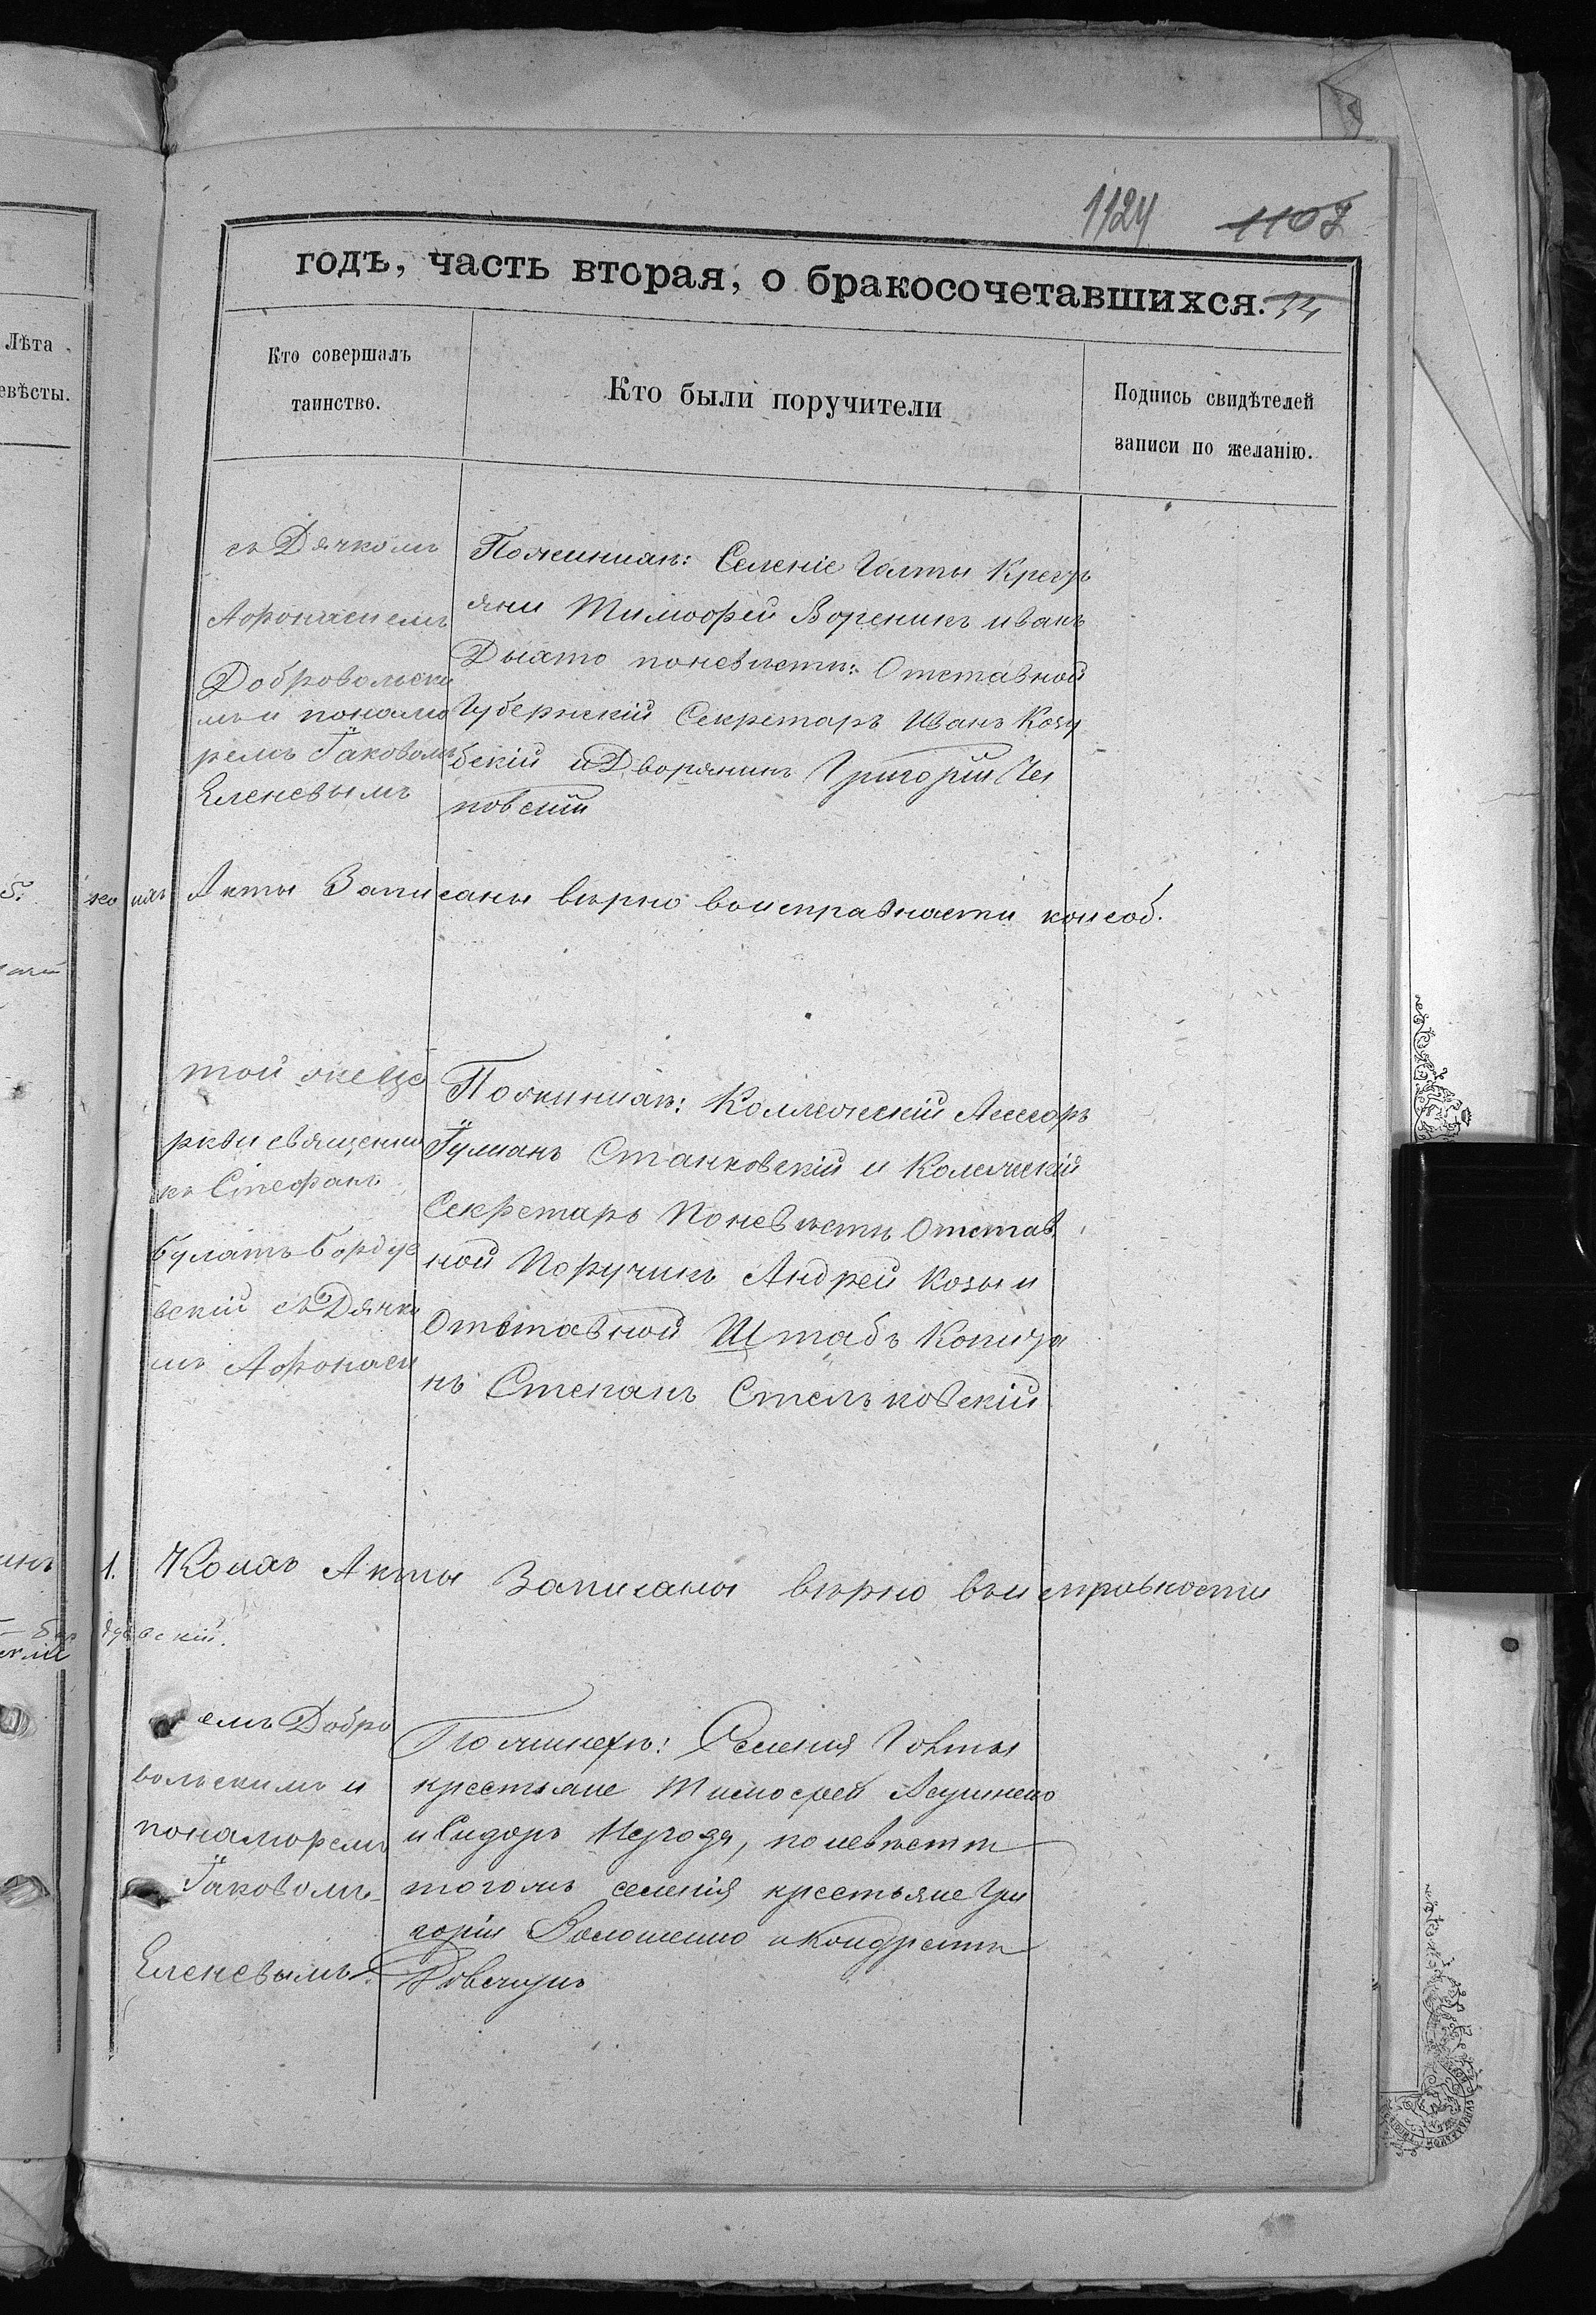 1124 1107
годъ, часть вторая, о бракосочетавшихся. 34
Лѣта
евѣсты.
Кто совершалъ
таинство.
Кто были поручители
Подпись свидѣтелей
записи по желанію.
съ Дячкомъ
Афонасиемъ
Добровольски
мъ и понамо
ремъ Їаковомъ
Еленевымъ
Пожинихѣ: Селеніе Голты Крестъ
яни Тимофей Вореникъ иванъ
поневѣсти: Отставной
Губернскій Секретаръ Иванъ Козу
бскій и Дворянинъ Григорій Чеп
повскій
Акты Записаны вѣрно воисправности
той же Це
ркви священни
къ Стефанъ
Булатъ Бордуе
вскій съ Дячко
мъ Афонаси
Пожинихѣ: Коллежскій Ассесоръ
Їулианъ Станковскій и Колежскій
Секретаръ Поневѣсти Отстав
ной Поручикъ Андрей Козы и
Отставной Штабъ Копита
нъ Степанъ Стельковскій
1.
Акты Записаны вѣрно въисправности
вскій.
емъ Добро
вольскимъ и
понаморемъ
Їаковомъ
Еленевымъ
По жинехѣ: Селения Говты
крестяне Тимофей
и Сидоръ Негода, поневѣсти
тогожъ селенія крестьяне Гри
горій Волошенко и Кондратъ